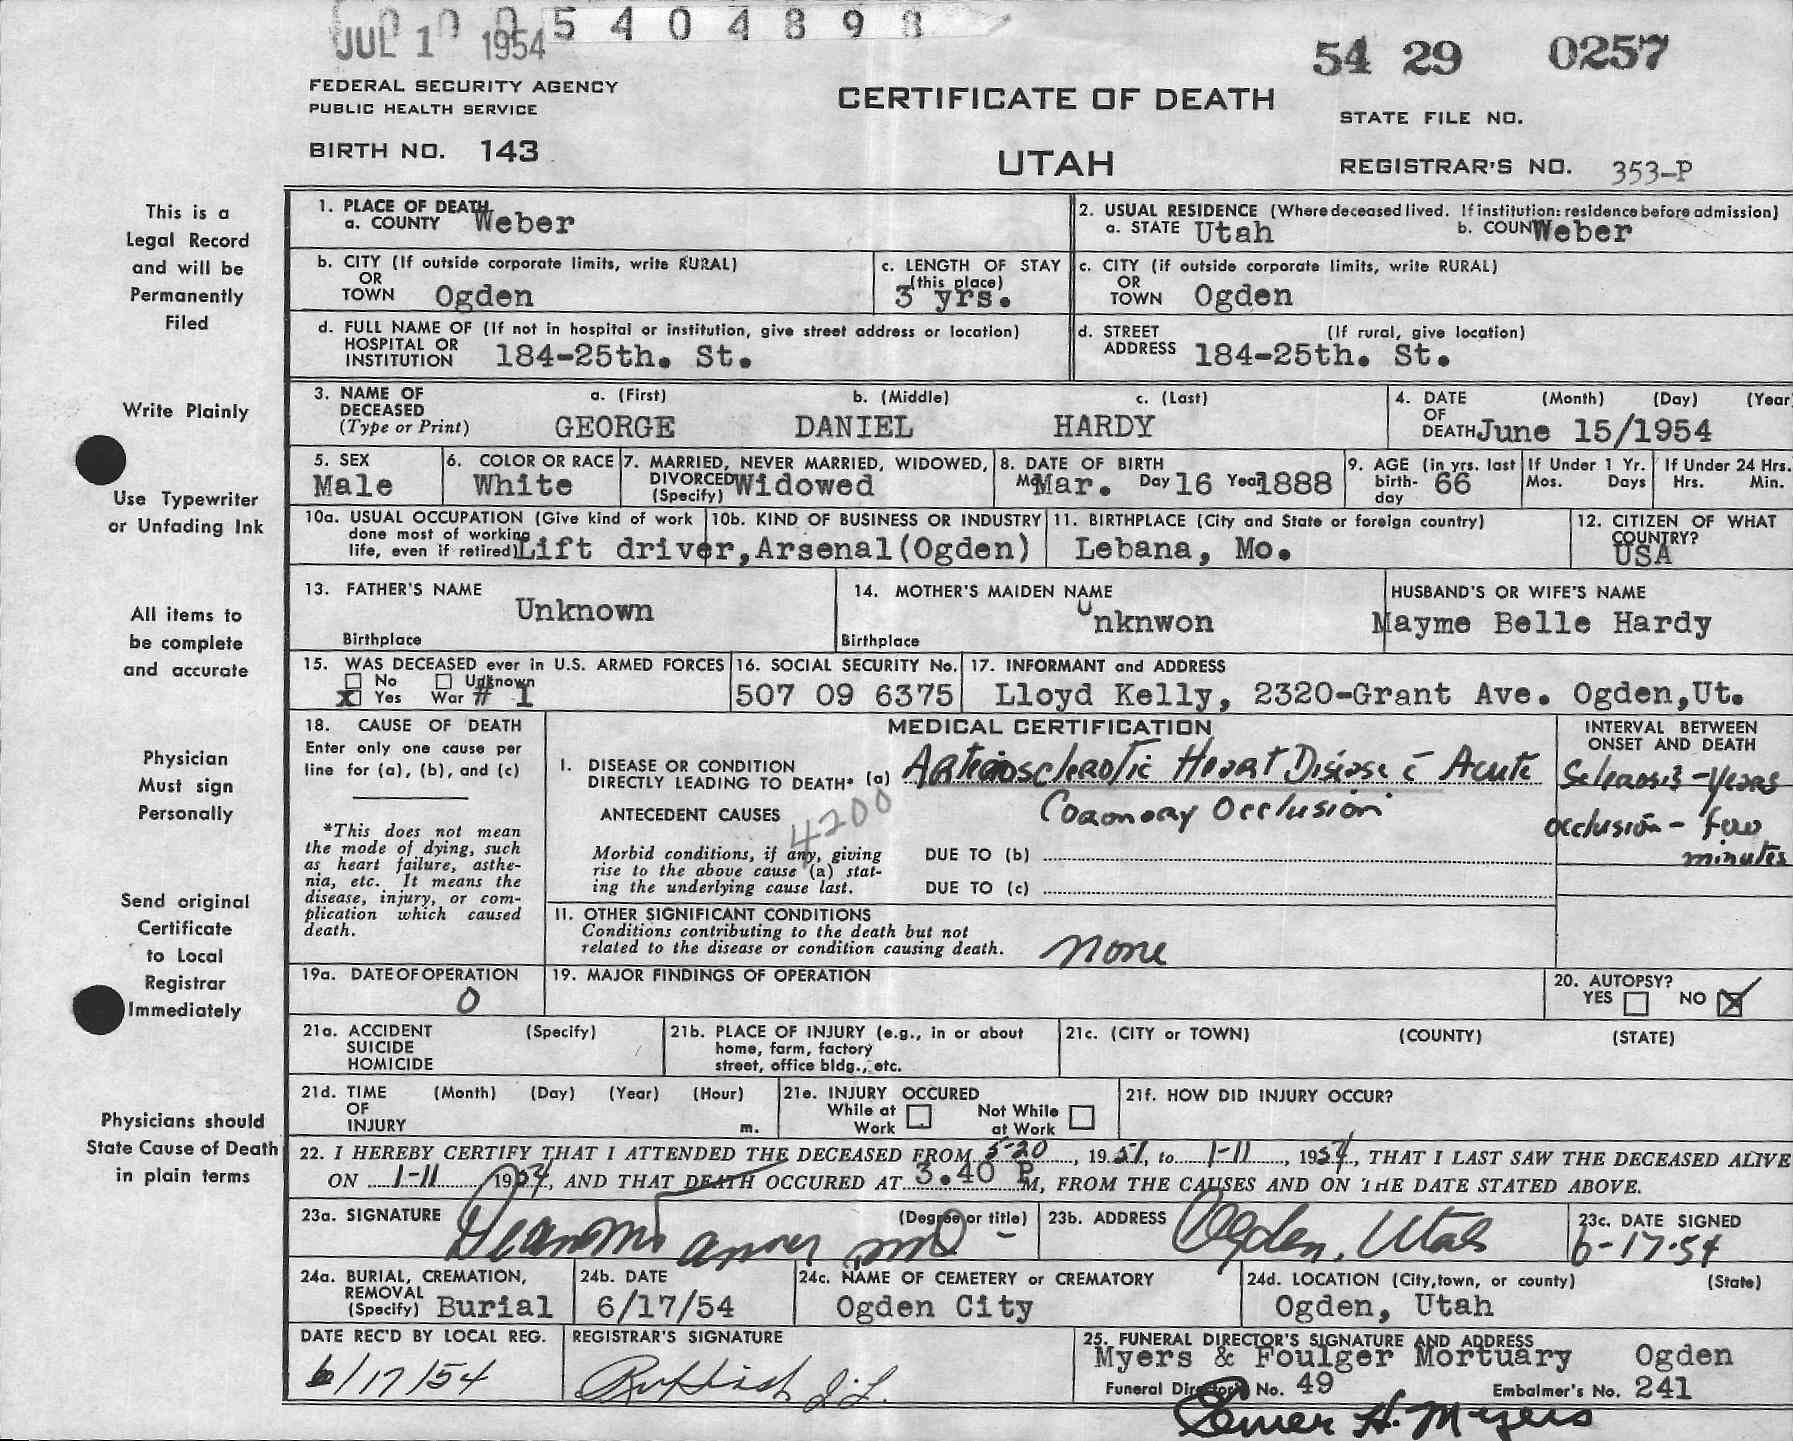 JUL 1 1954
0 0 0 5 4 0 4 8 9 8
54 29 0257
FEDERAL SECURITY AGENCY
PUBLIC HEALTH SERVICE
CERTIFICATE OF DEATH
STATE FILE NO.
BIRTH NO. 143
UTAH
REGISTRAR'S NO. 353-P
This is a
Legal Record
and will be
Permanently
Filed
Write Plainly
Use Typewriter
or Unfading Ink
All items to
be complete
and accurate
Physician
Must sign
Personally
Send original
Certificate
to Local
Registrar
Immediately
Physicians should
State Cause of Death
in plain terms
1. PLACE OF DEATH
a. COUNTY Weber
2. USUAL RESIDENCE (Where deceased lived. If institution: residence before admission)
a. STATE Utah b. COUN Weber
b. CITY (If outside corporate limits, write RURAL)
OR
TOWN Ogden
c. LENGTH OF STAY
(this place)
3 yrs.
c. CITY (if outside corporate limits, write RURAL)
OR
TOWN Ogden
d. FULL NAME OF (If not in hospital or institution, give street address or location)
HOSPITAL OR
INSTITUTION 184-25th. St.
d. STREET (If rural, give location)
ADDRESS 184-25th. St.
3. NAME OF a. (First) b. (Middle) c. (Last)
DECEASED
(Type or Print) GEORGE DANIEL HARDY
4. DATE (Month) (Day) (Year
OF
DEATH June 15/1954
5. SEX
Male
6. COLOR OR RACE
White
7. MARRIED, NEVER MARRIED, WIDOWED,
DIVORCED
(Specify) Widowed
8. DATE OF BIRTH
Mar. Day 16 Year 1888
9. AGE (in yrs. last
birth-
day 66
If Under 1 Yr.
Mos. Days
If Under 24 Hrs.
Hrs. Min.
10a. USUAL OCCUPATION (Give kind of work
done most of working
life, even if retired) Lift driver,
10b. KIND OF BUSINESS OR INDUSTRY
Arsenal(Ogden)
11. BIRTHPLACE (City and State or foreign country)
Lebana, Mo.
12. CITIZEN OF WHAT
COUNTRY?
USA
13. FATHER'S NAME
Unknown
Birthplace
14. MOTHER'S MAIDEN NAME
Unknwon
Birthplace
HUSBAND'S OR WIFE'S NAME
Mayme Belle Hardy
15. WAS DECEASED ever in U.S. ARMED FORCES
No Unknown
x Yes War # 1
16. SOCIAL SECURITY No.
507 09 6375
17. INFORMANT and ADDRESS
Lloyd Kelly, 2320-Grant Ave. Ogden,Ut.
18. CAUSE OF DEATH
Enter only one cause per
line for (a), (b), and (c)
*This does not mean
the mode of dying, such
as heart failure, asthe-
nia, etc. It means the
disease, injury, or com-
plication which caused
death.
MEDICAL CERTIFICATION
I. DISEASE OR CONDITION
DIRECTLY LEADING TO DEATH* (a) Arteriosclerotic Heart Disease c̄ Acute
Coronory Occlusion
ANTECEDENT CAUSES
4200
Morbid conditions, if any, giving
rise to the above cause (a) stat-
ing the underlying cause last.
DUE TO (b)
DUE TO (c)
INTERVAL BETWEEN
ONSET AND DEATH
Sclerosis - years
occlusion - few
minutes
II. OTHER SIGNIFICANT CONDITIONS
Conditions contributing to the death but not
related to the disease or condition causing death. none
19a. DATE OF OPERATION
0
19. MAJOR FINDINGS OF OPERATION
20. AUTOPSY?
YES NO
21a. ACCIDENT (Specify)
SUICIDE
HOMICIDE
21b. PLACE OF INJURY (e.g., in or about
home, farm, factory
street, office bldg., etc.
21c. (CITY or TOWN) (COUNTY) (STATE)
21d. TIME (Month) (Day) (Year) (Hour)
OF
INJURY m.
21e. INJURY OCCURED
While at Not While
Work at Work
21f. HOW DID INJURY OCCUR?
22. I HEREBY CERTIFY THAT I ATTENDED THE DECEASED FROM 5-20, 1951, to 1-11, 1954, THAT I LAST SAW THE DECEASED ALIVE
ON 1-11 1954, AND THAT DEATH OCCURED AT 3.40 P M, FROM THE CAUSES AND ON THE DATE STATED ABOVE.
23a. SIGNATURE (Degree or title)
MD
23b. ADDRESS
Ogden, Utah
23c. DATE SIGNED
6-17-54
24a. BURIAL, CREMATION,
REMOVAL
(Specify) Burial
24b. DATE
6/17/54
24c. NAME OF CEMETERY or CREMATORY
Ogden City
24d. LOCATION (City, town, or county) (State)
Ogden, Utah
DATE REC'D BY LOCAL REG.
6/17/54
REGISTRAR'S SIGNATURE
25. FUNERAL DIRECTOR'S SIGNATURE AND ADDRESS
Myers & Foulger Mortuary Ogden
Funeral Director's No. 49 Embalmer's No. 241
Elmer H. Myers